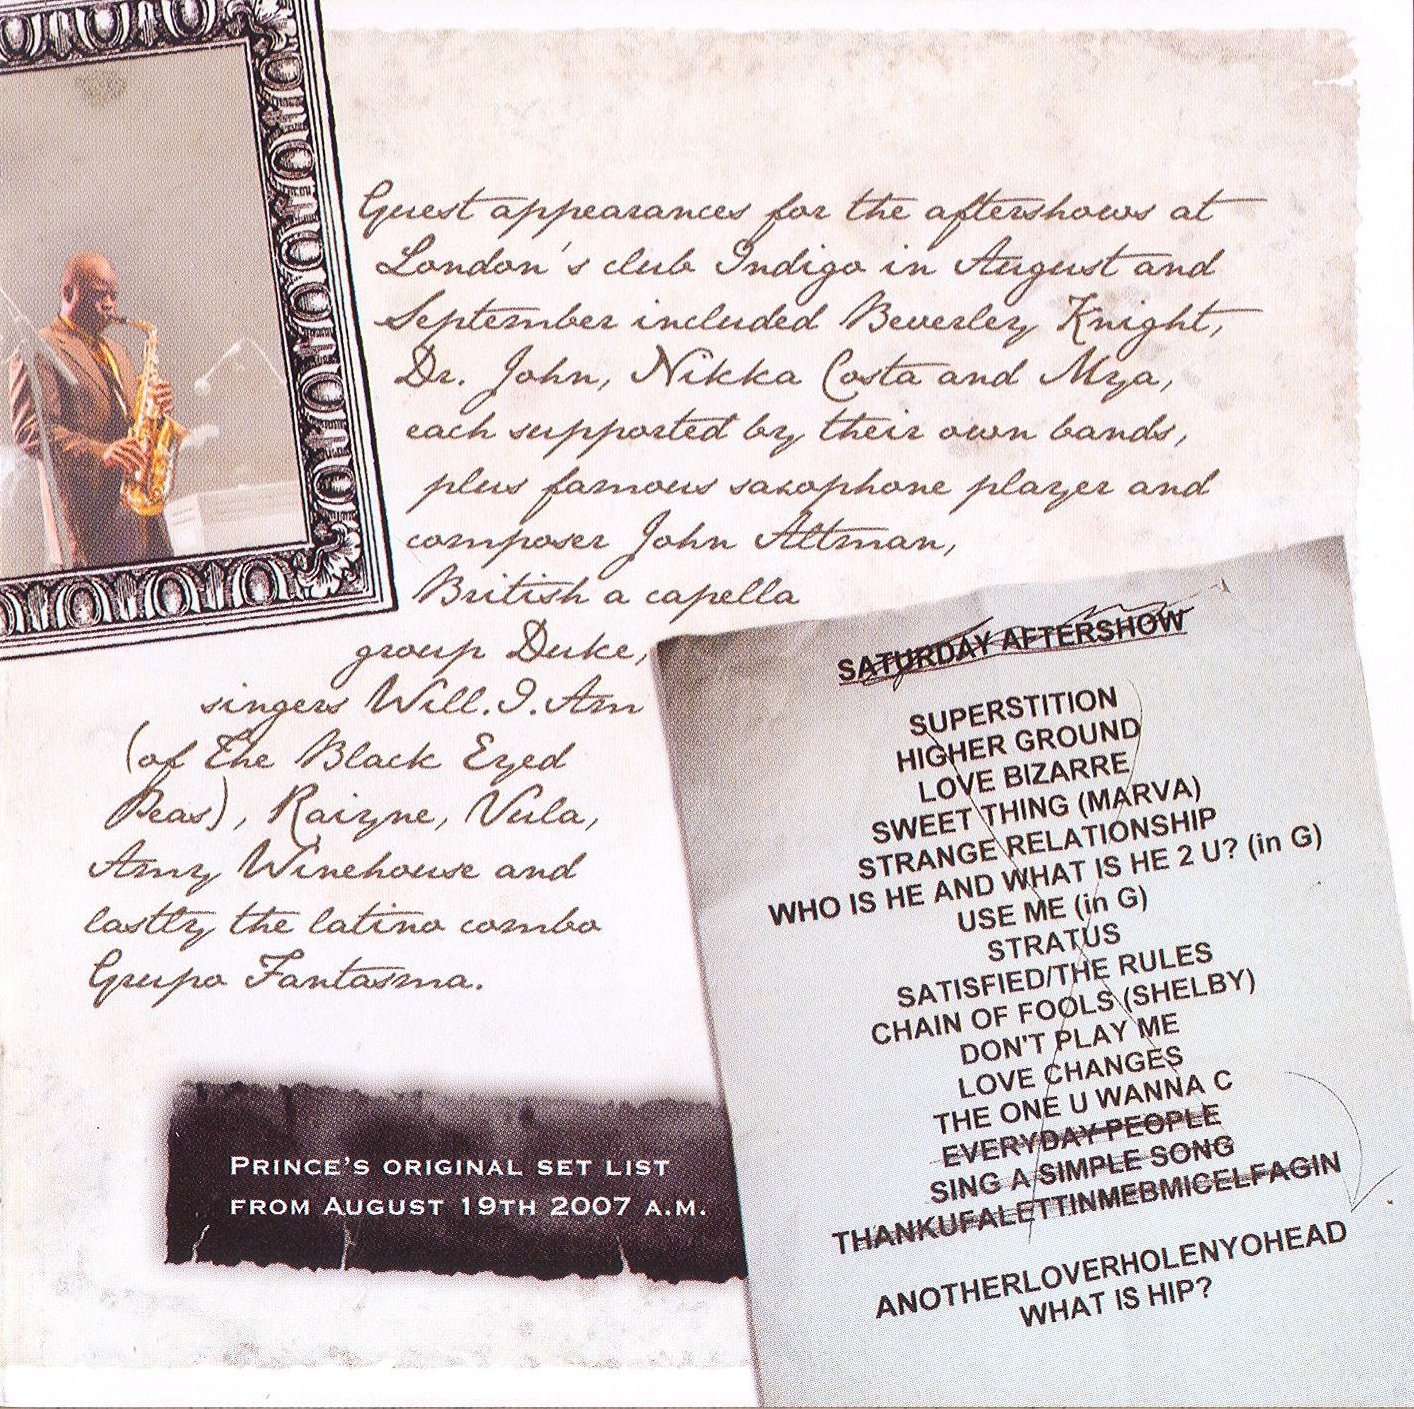 Guest appearances for the aftershows at
London's club Indigo in August and
September included Beverley Knight,
Dr. John, Nikka Costa and Mya,
each supported by their own bands,
plus famous saxophone player and
composer John Altman,
British a capella
group Duke,
singers Will.I.Am
(of The Black Eyed
Peas), Raizne, Vula,
Amy Winehouse and
lastly the latino combo
Grupo Fantasma.
PRINCE'S ORIGINAL SET LIST
FROM AUGUST 19TH 2007 A.M.
SATURDAY AFTERSHOW
SUPERSTITION
HIGHER GROUND
LOVE BIZARRE
SWEET THING (MARVA)
STRANGE RELATIONSHIP
WHO IS HE AND WHAT IS HE 2 U? (in G)
USE ME (in G)
STRATUS
SATISFIED/THE RULES
CHAIN OF FOOLS (SHELBY)
DON'T PLAY ME
LOVE CHANGES
THE ONE U WANNA C
EVERYDAY PEOPLE
SING A SIMPLE SONG
THANKUFALETTINMEBMICELFAGIN
ANOTHERLOVERHOLENYOHEAD
WHAT IS HIP?